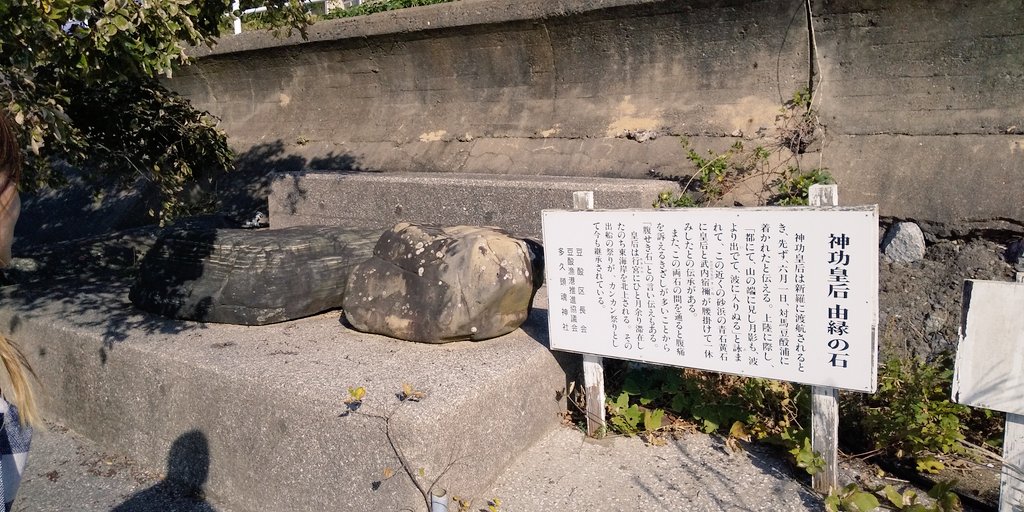 神功皇后 由縁の石
神功皇后は新羅に渡航されると
き、先ず、六月一日、対馬豆酘浦に
着かれたと伝える。上陸に際し、
「都にて、山の端に見し月影も、波
より出でて、波に入りぬる」と詠ま
れて、この近くの砂浜の青石黄石
に皇后と武内宿禰が腰掛けて一休
みしたとの伝承がある。
また、この両石の間を通ると腹痛
を訴えるきざしが多いことから
「腹せき石」との言い伝えもある。
皇后は行宮にひと月余り滞在し
たのち東海岸を北上される。その
出船の祭りが、カンカン祭りとし
て今も継承されている。
豆酘区長会
豆酘漁港推進協議会
多久頭魂神社